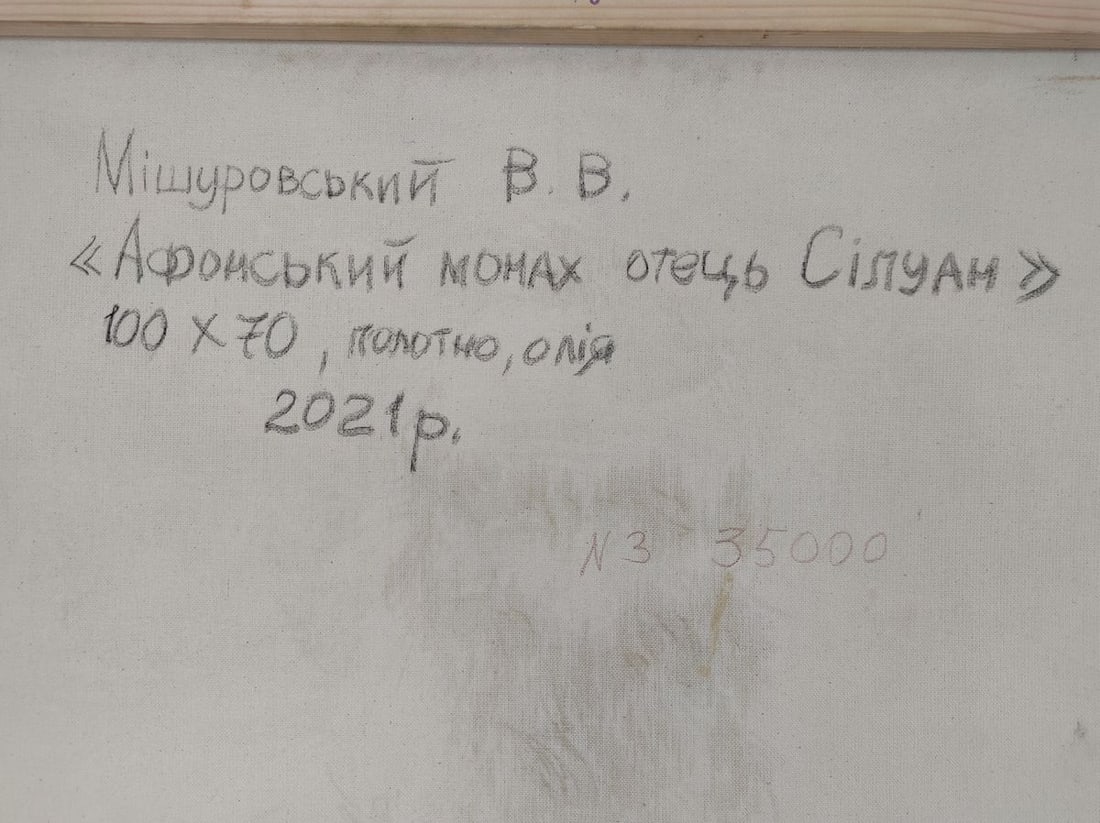 Мішуровський В. В.
«Афонський монах отець Сілуан»
100 х 70, полотно, олія
2021 р.
N 3 35000